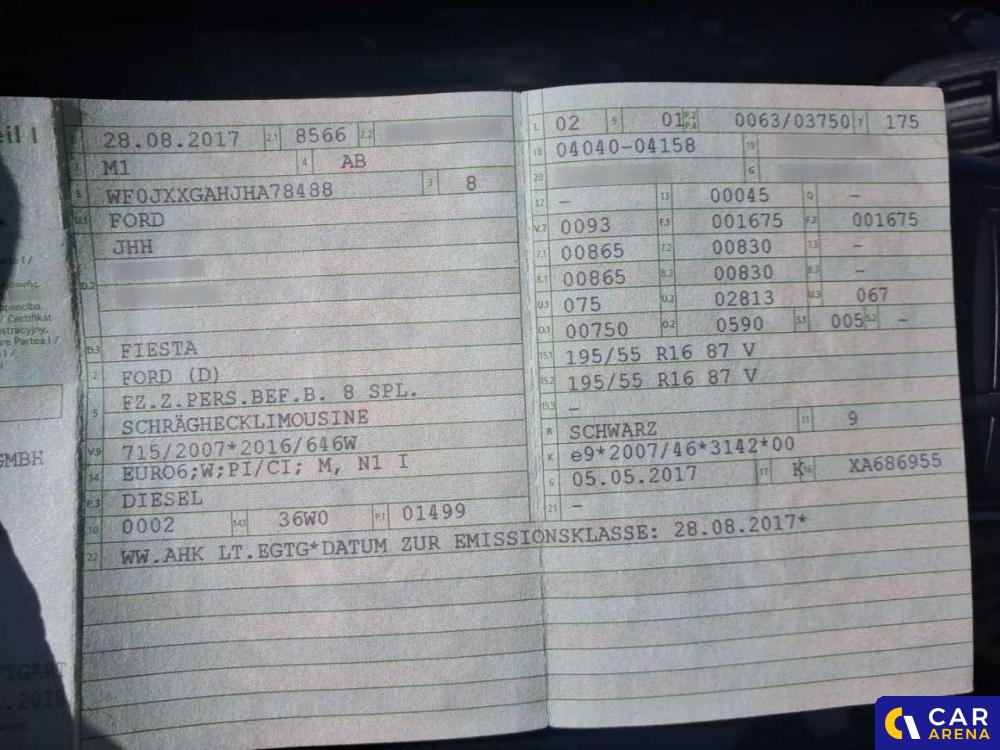 eil I
B 28.08.2017 2.1 8566 2.2
J M1 4 AB
E WF0JXXGAHJHA78488 3 8
D.1 FORD
JHH
D.2
D.3 FIESTA
2 FORD (D)
5 FZ.Z.PERS.BEF.B. 8 SPL.
SCHRÄGHECKLIMOUSINE
V.9 715/2007*2016/646W
14 EURO6;W;PI/CI; M, N1 I
P.3 DIESEL
10 0002 14.1 36W0 P.1 01499
22 WW.AHK LT.EGTG*DATUM ZUR EMISSIONSKLASSE: 28.08.2017*
L 02 9 01 P.2 P.4 0063/03750 T 175
18 04040-04158 19
20 G
12 – 13 00045 Q –
V.7 0093 F.1 001675 F.2 001675
7.1 00865 7.2 00830 7.3 –
8.1 00865 8.2 00830 8.3 –
U.1 075 U.2 02813 U.3 067
O.1 00750 O.2 0590 S.1 005 S.2 –
15.1 195/55 R16 87 V
15.2 195/55 R16 87 V
15.3 –
R SCHWARZ 11 9
K e9*2007/46*3142*00
6 05.05.2017 17 K 16 XA686955
21 –
/ Certifikat
estracyjny,
re Partea I /
GMBH
TGART
CAR
ARENA